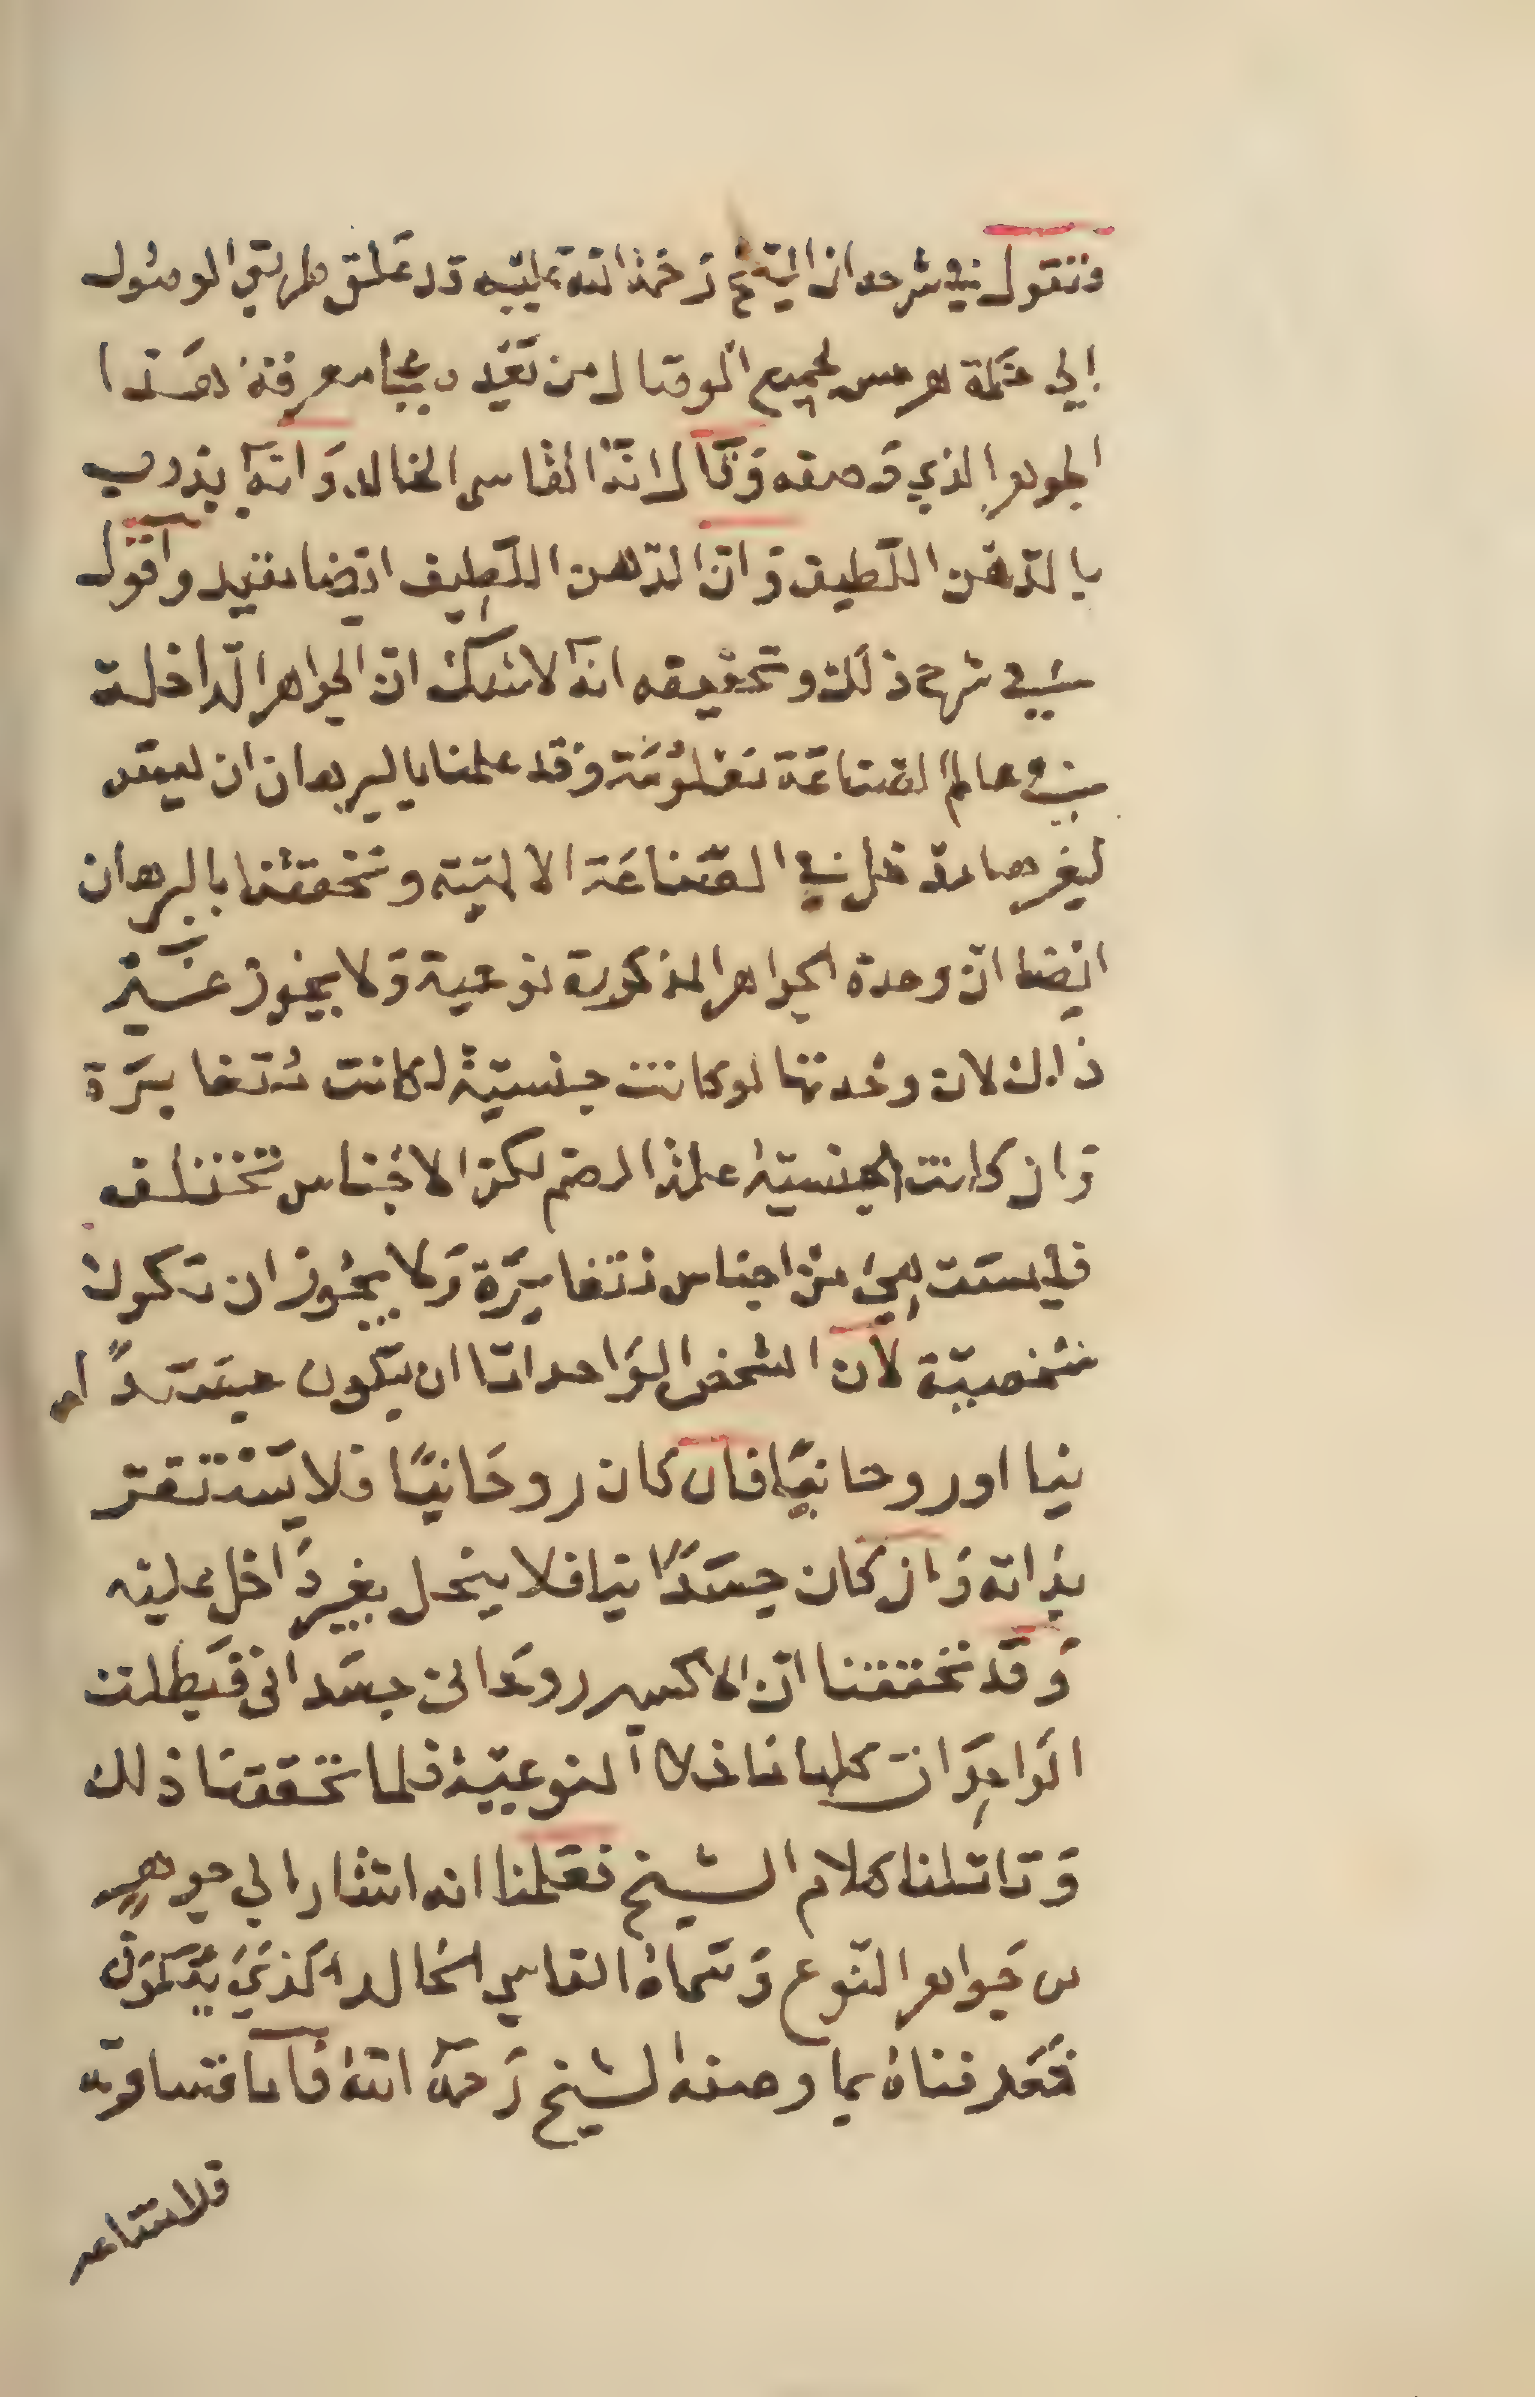 فنقول في شرحه ان الشيخ رحمة الله عليه قد علق طريق الوصول
الي حكمة هرمس لجميع الوصال من تقيد معرفة هذا
الجوهر الذي وصفه وقال انه القاسي الخالد وانه يذوب
بالدهن اللطيف وان الدهن اللطيف ايضا منه واقول
في شرح ذلك وتحقيقه انه لا شك ان الجواهر الداخلة
في عالم الصناعة معلومة وقد علمنا بالبرهان ان ليس
لغيرها مدخل في الصناعة الالهية وتحققنا بالبرهان
ايضا ان وحدة الجواهر المذكورة نوعية ولا يجوز غير
ذالك لان وحدتها لو كانت جنسية لكانت متغايرة
وان كانت الجنسية علة الرسم لكن الاجناس تختلف
فليست هي من اجناس متغايرة ولا يجوز ان تكون
شخصية لان الشخص الواحد اما ان يكون جسدا
نيا او روحانيا فان كان روحانيا فلا يستقر
بذاته وان كان جسدا نيا فلا ينحل بغير داخل عليه
وقد تحققنا ان الاكسير روحانى جسدانى فبطلت
الواحدات كلها ما خلا النوعية فلما تحققنا ذلك
وتاملنا كلام الشيخ فعلمنا انه اشار الي جوهر
من جواهر النوع وسماه القاسي الخالد الذي يكون
فعرفناه بما وصفه الشيخ رحمه الله فاما قساوته